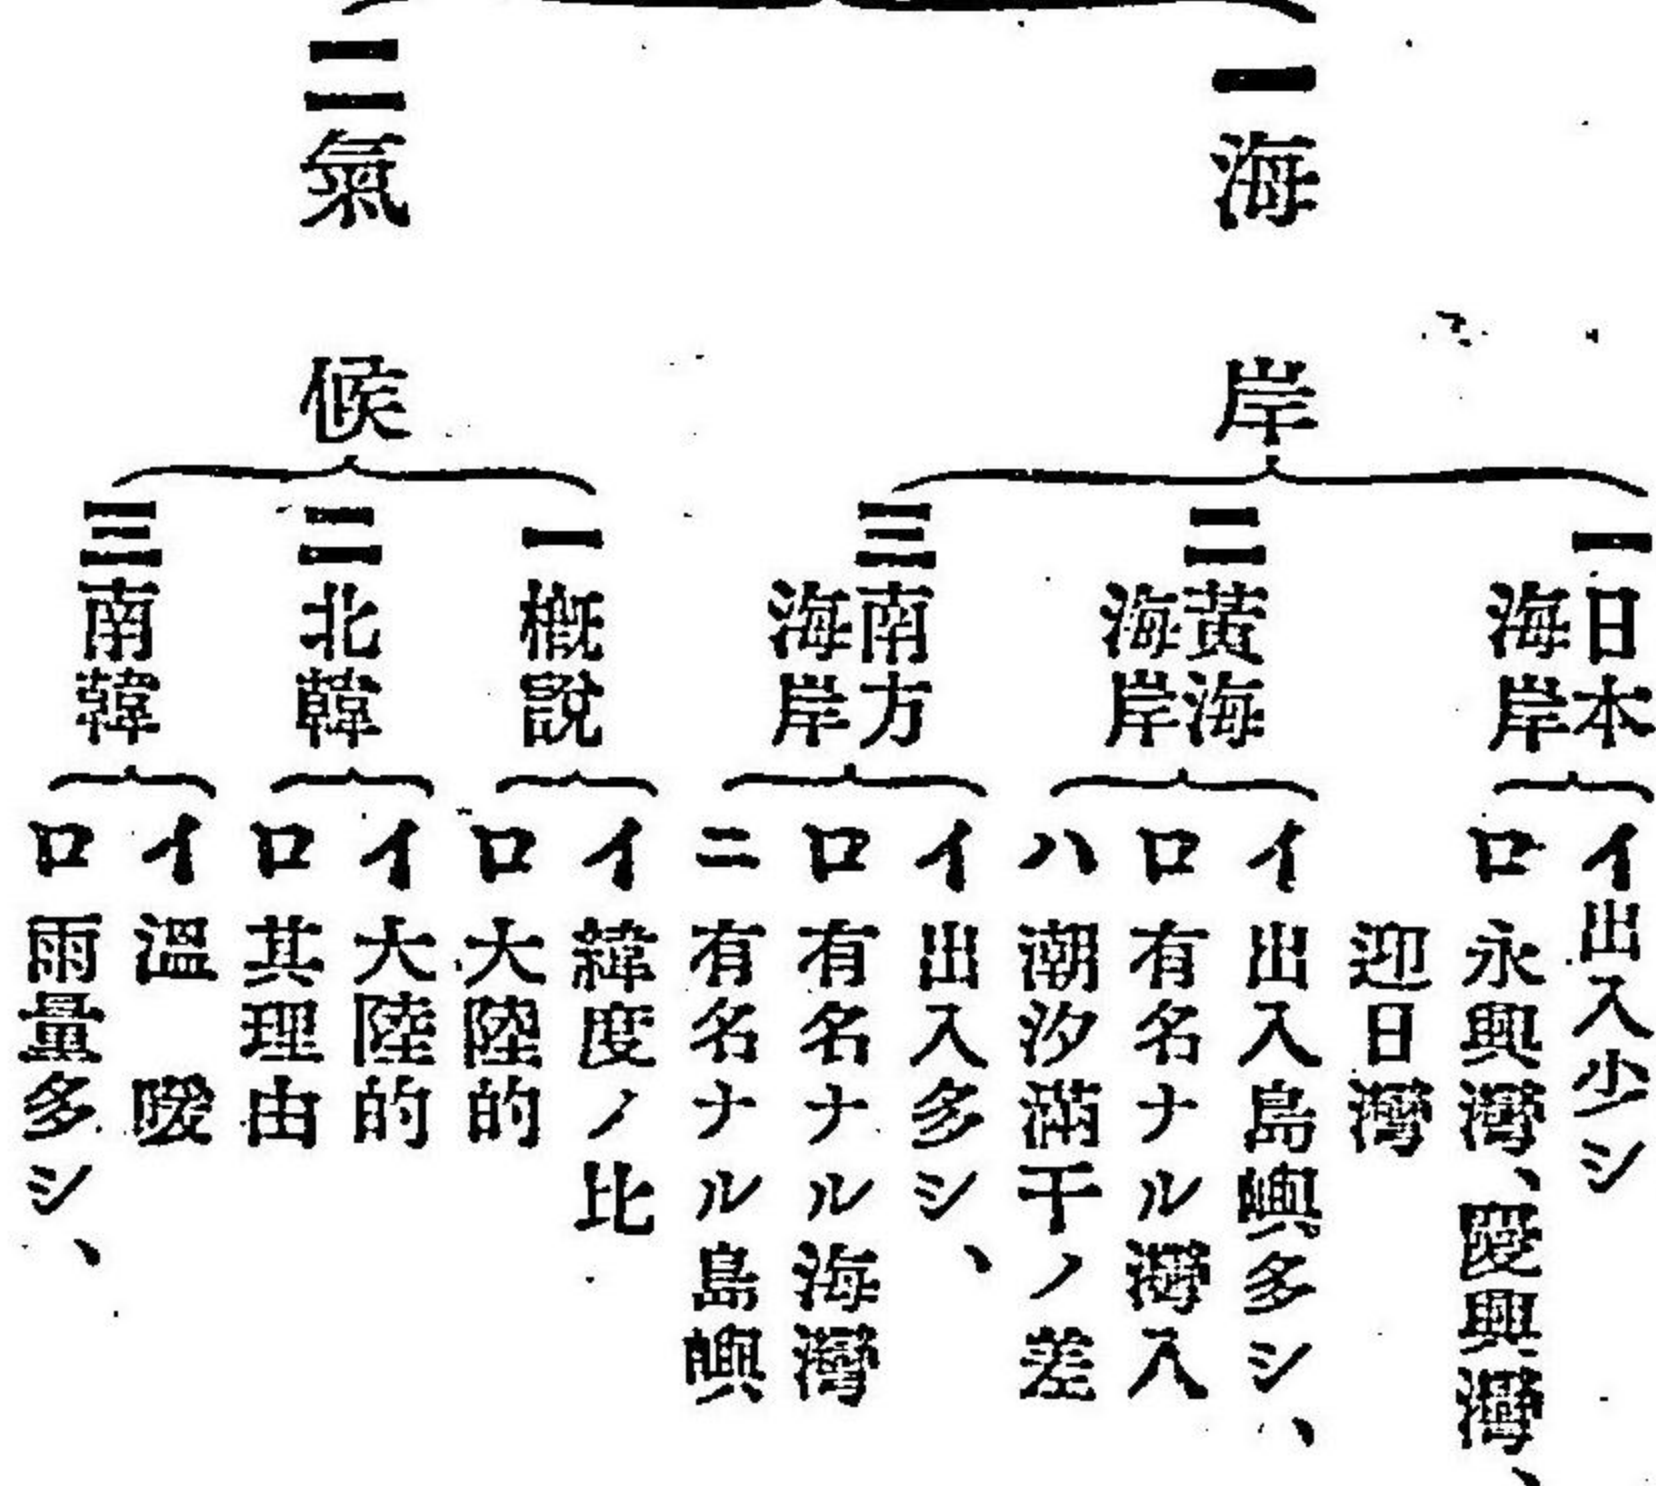 一海岸
一日本海岸
イ出入少シ
ロ永興灣、慶興灣、
迎日灣
二黃海海岸
イ出入島嶼多シ、
ロ有名ナル灣入
ハ潮汐滿干ノ差
三南方海岸
イ出入多シ、
ロ有名ナル海灣
ニ有名ナル島嶼
二氣候
一槪說
イ緯度ノ比
ロ大陸的
二北韓
イ大陸的
ロ其理由
三南韓
イ溫暖
ロ雨量多シ、